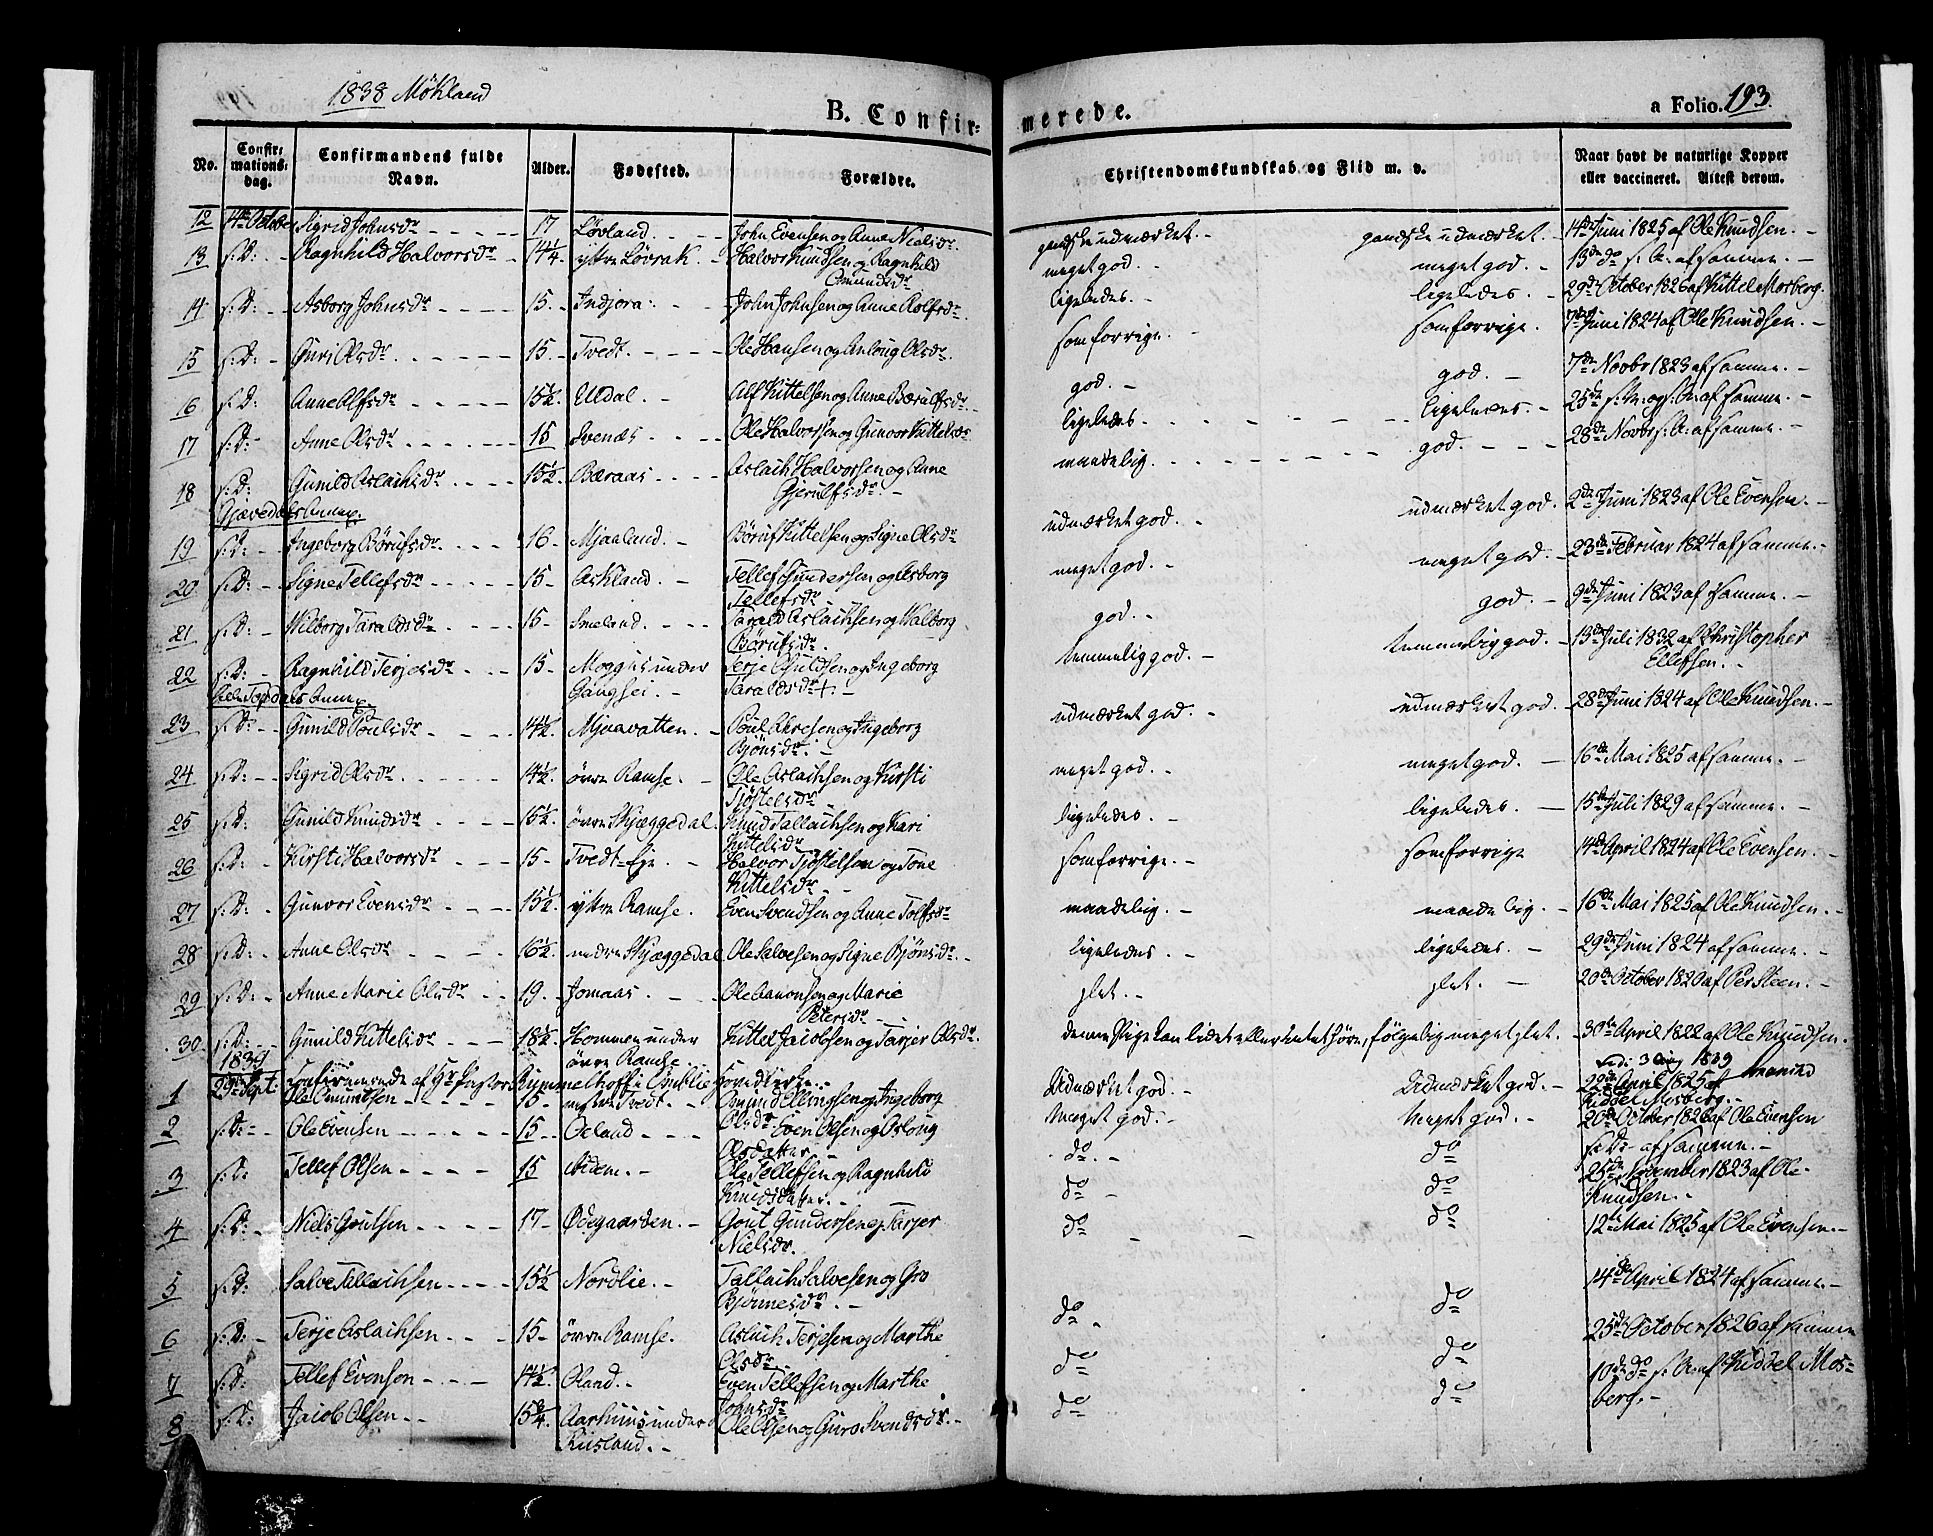 1838 Mökland
B. Confirmerede.
a Folio. 193.
No. Confirmations dag. Confirmandens fulde Navn. Alder. Fødested. Forældre. Christendomskundskab og Flid m. v. Naar havt de naturlige Kopper eller vaccineret. Attest derom.
12 14de October Sigrid Johnsdr 17 Lövland. John Evensen og Anne Nielsdr. gandske udmærket. gandske udmærket. 14de Juni 1825 af Ole Knudsen.
13 s: D: Ragnhild Halvorsdr 14¼ yttre Lövrak. Halvor Knudsen og Ragnhild Omundsdr meget god. meget god. 13de do s. A. af samme.
14 s: D: Asborg Johnsdr 15. Indjora: John Johnsen og Anne Rolfsdr. ligeledes. ligeledes. 29de October 1826 af Kittel Mosberg.
15 s: D: Guri Olsdr. 15. Tvedt. Ole Hansen og Anloug Olsdr som forrige. som forrige. 7de Juni 1824 af Ole Knudsen.
16 s: D: Anne Alfsdr 15½ Uldal. Alf Kittelsen og Anne Bærulfsdr. god. god. 7de Novbr 1823 af samme.
17 s: D: Anne Olsdr 15 Svenæs. Ole Halvorsen og Gunvor Kittelsdr ligeledes. ligeledes. 25de s: M: og s: A: af samme.
18 s: D: Gunild Aslachsdr 15½ Bæraas Aslach Halvorsen og Anne Gjerulfsdr. maadelig. god. 28de Novbr s: A: af samme.
Gjævedals Annex.
19 s: D: Ingeborg Börufsdr. 16. Mjaaland. Böruf Kittelsen og Signe Olsdr udmærket god. udmærket god. 2den Juni 1823 af Ole Evensen.
20 s: D: Signe Tellefsdr 15. Askland. Tellef Gundersen og Asborg Tellefsdr meget god. meget god. 23de Februar 1824 af samme.
21 s: D: Wilborg Taraldsdr 15. Smeland. Tarald Aslachsen og Walborg Börufsdr. god. god. 9de Juni 1823 af samme.
22 s: D: Ragnhild Terjesdr 15. Mogghus under Gangsei. Terje Ouldsen og Ingeborg Taraldsdr +. temmelig god. temmelig god. 13de Juli 1832 af Christopher Ellefsen.
Topdals Annex.
23 s: D: Gunild Poulsdr 14½ Mjaavatten. Poul Akresen og Ingeborg Bjönsdr. udmærket god. udmærket god. 28de Juni 1824 af Ole Knudsen.
24 s: D: Sigrid Olsdr. 14½ övre Ramse. Ole Aslachsen og Kirsti Tjöstelsdr. meget god. meget god. 16de Mai 1825 af samme.
25 s: D: Gunild Knudsdr 15½ övre Skjæggedal. Knud Tallachsen og Kari Kittelsdr ligeledes. ligeledes. 15de Juli 1829 af samme.
26 s: D: Kirsti Halvorsdr 15. Tvedt-Eje. Halvor Tjöstelsen og Tone Kittelsdr som forrige. som forrige 14de April 1824 af Ole Evensen.
27 s: D: Gunvor Evensdr 15½ yttre Ramse. Even Svendsen og Anne Tolfsdr maadelig. maadelig. 16de Mai 1825 af Ole Knudsen.
28 s: D: Anne Olsdr 16½ nedre Skjæggedal Ole Salvesen og Signe Bjönsdr. ligeledes. ligeledes. 29de Juni 1824 af samme.
29 s: D: Anne Marie Olsdr 19. Jomaas. Ole Aanonsen og Marie Petersdr slet. slet. 20de October 1820 af Per Steen.
30. s: D: Gunild Kittelsdr 18½ Hommen under övre Ramse. Kittel Jacobsen og Tarjer Olsdr. denne Pige kan lidet eller intet höre, fölgelig meget slet. 30te April 1822 af Ole Knudsen.
1839 Confirmerede af Hr Pastor Rummelhoff i Omblie Hovedkirke.
Vidi 3 Aug 1839
1 29de Sept: Ole Omundsen 15. Tvedt. Omund Ellingsen og Ingeborg Olsdr. Udmærket god. Udmærket god. 22de April 1825 af Kiddel Mosberg.
2 s: D: Ole Evensen 15. Oeland Even Olsen og Asloug Olsdatter Meget god. Meget god. 20de October 1826 af Ole Evensen
3 s: D: Tellef Olsen 15 Ibidem. Ole Tellefsen og Ragnhild Knudsdatter. do do s: D: af samme.
4 s: D: Niels Goutsen 17 Ødegaarden. Gout Gundersen og Tarjer Nielsdr. do do 25de November 1823 af Ole Knudsen.
5 s: D: Salve Tallachsen 15½ Nordlie. Tallach Salvesen og Gro Bjönnesdr. do do 12te Mai 1825 af Ole Evensen.
6 s: D: Terje Aslachsen 15 övre Ramse. Aslach Terjesen og Marthe Olsdr do do 14de April 1824 af samme.
7 s: D: Tellef Evensen 14½ Oland. Even Tellefsen og Marthe Johnsdr do do 25de October 1826 af samme
8 s: D: Jacob Olsen 15¾ Aarhuus under Riisland. Ole Olsen og Guro Svendsdr. do do 10de do s: A: af Kiddel Mosberg.